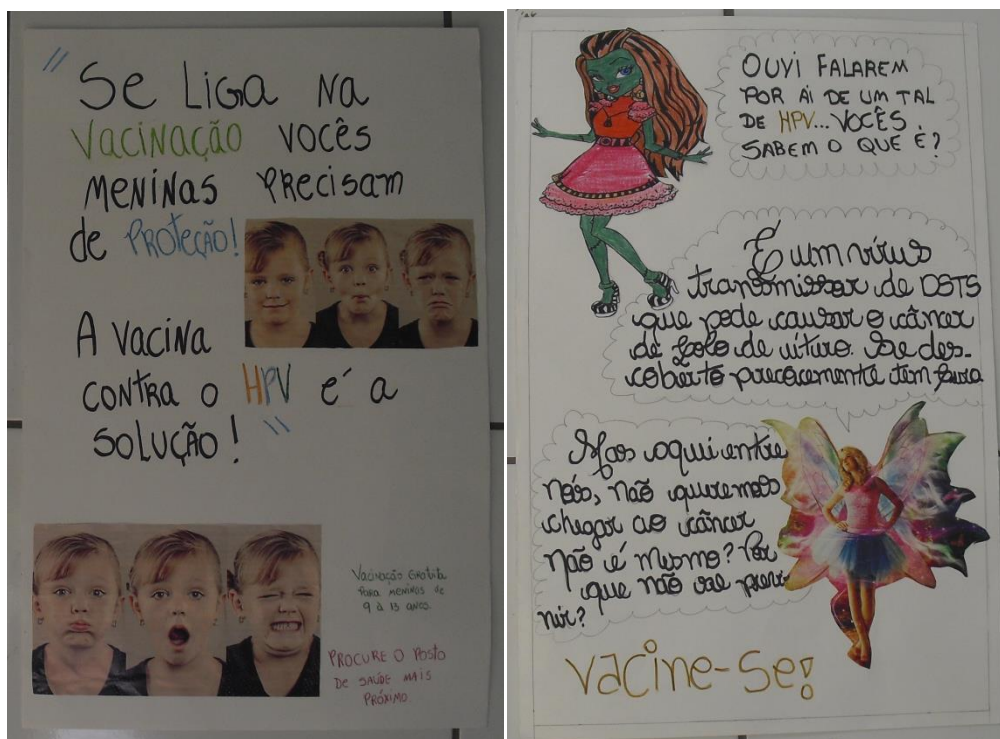 "
Se Liga na
Vacinação vocês
meninas precisam
de proteção!
A vacina
contra o HPV é a
solução! "
Vacinação gratuita
para meninas de
9 à 13 anos.
Procure o posto
de saúde mais
próximo.
Ouvi falarem
por aí de um tal
de HPV... Vocês
sabem o que é?
É um vírus
transmissor de DSTS
que pode causar o câncer
de colo de útero. Se des-
coberto precocemente tem cura
Mas aqui entre
nós, não queremos
chegar ao câncer
não é mesmo? Por
que não se preve
nir?
Vacine-se!